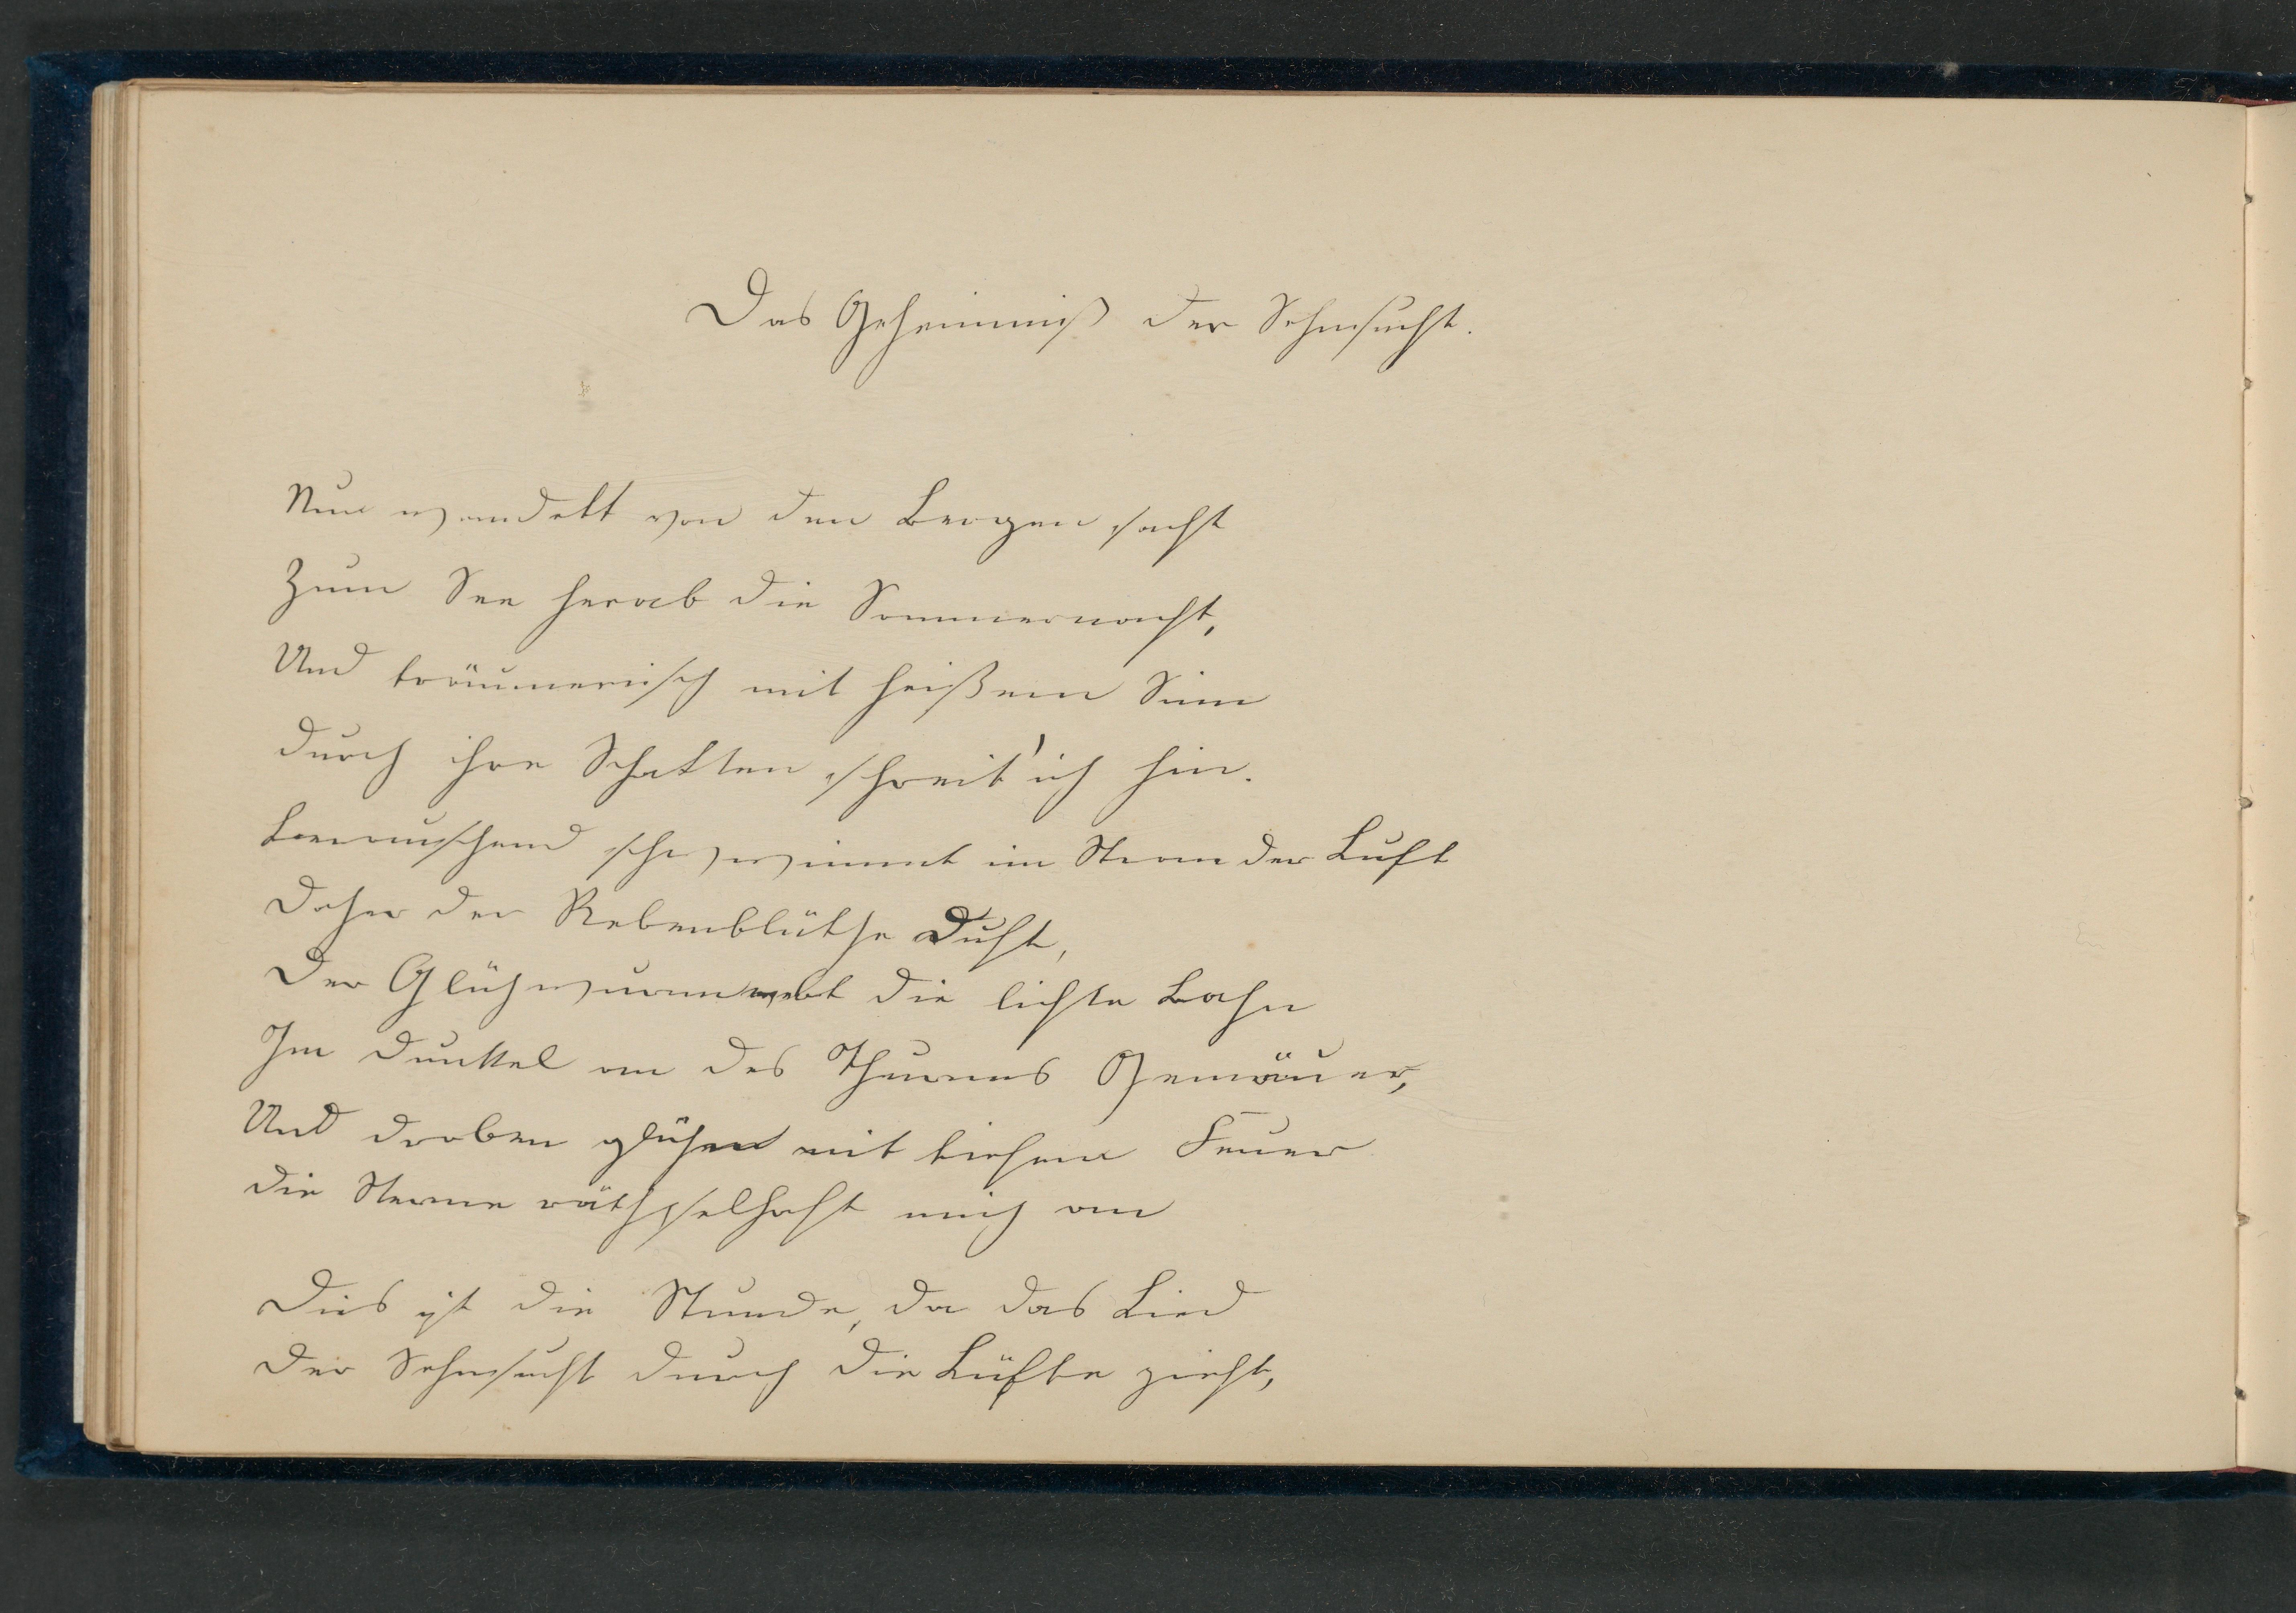 Das Geheimniß der Sehnsucht.
Nun wandelt von den Bergen sacht
Zum See herab die Sommernacht,
Und träumerisch mit heißem Sinn
durch ihre Schatten schreit' ich hin.
Berauschend schwimmt im Strom der Luft
Daher der Rebenblüthe Duft,
Der Glühwurm webt die lichte Bahn
Im Dunkel an des Thurms Gemäuer,
Und droben glühen mit tiefem Feuer
die Sterne räthselhaft mich an
Dies ist die Stunde, da das Lied
Der Sehnsucht durch die Lüfte zieht,